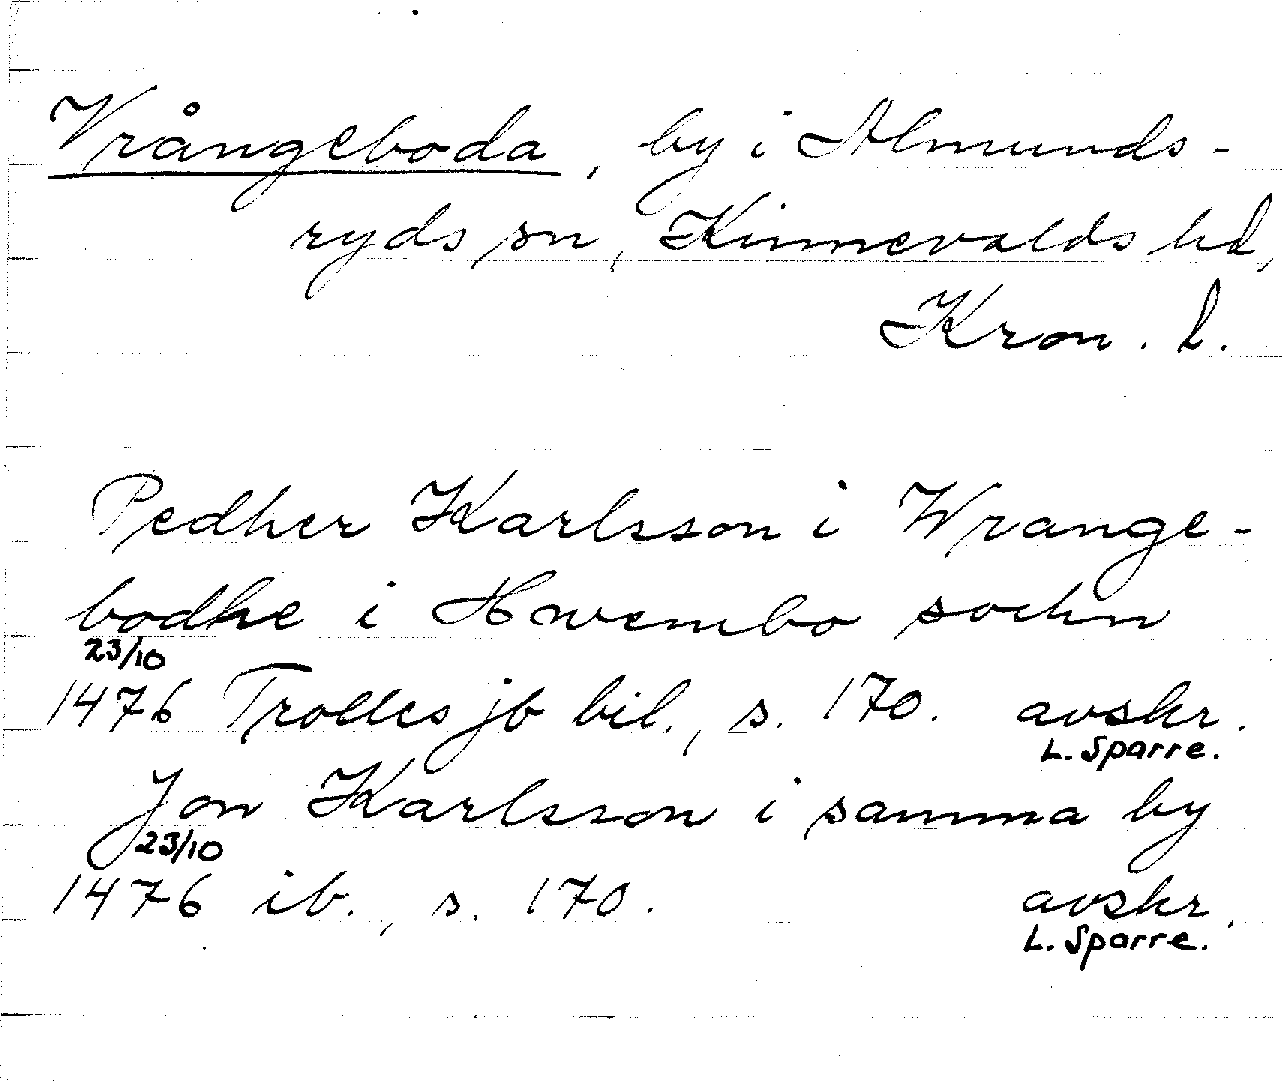 Vrångeboda, by i Almunds-
ryds sn, Kinnevalds hd,
Kron. l.
Pedher Karlsson i Wrange-
bodhe i Hwembo sochn
23/10
1476 Trolles jb bil., s. 170. avskr.
L. Sparre.
Jon Karlsson i samma by
23/10
1476 ib., s. 170. avskr.
L. Sparre.